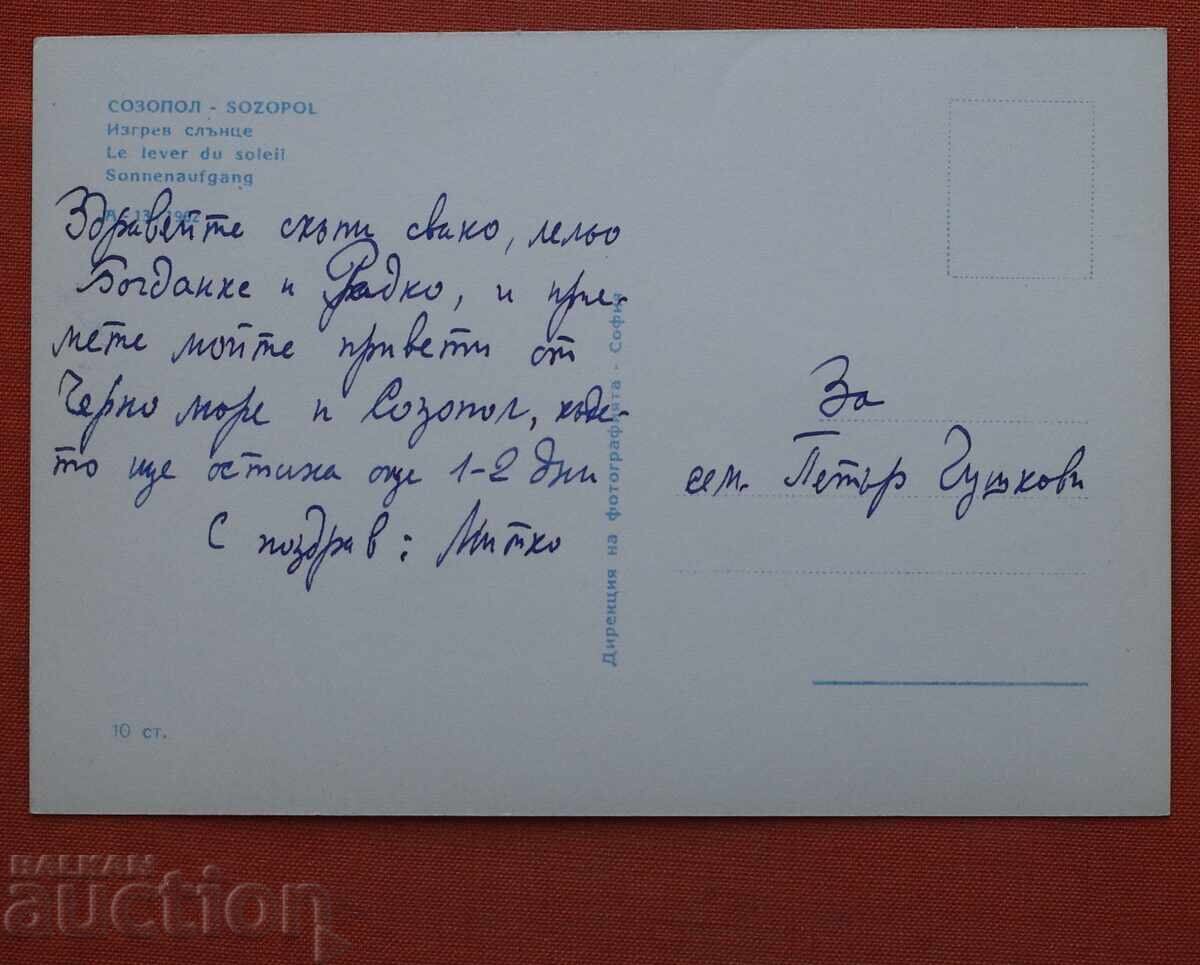 СОЗОПОЛ - SOZOPOL
Изгрев слънце
Le lever du soleil
Sonnenaufgang
А - 13 - 1962
Здравейте скъпи свако, лельо
Богданке и Радко, и прие-
мете мойте привети от
Черно море и Созопол, къде-
то ще остана още 1-2 дни
С поздрав: Митко
10 ст.
Дирекция на фотографията - София
За
сем. Петър Гушкови
BALKAN
auction